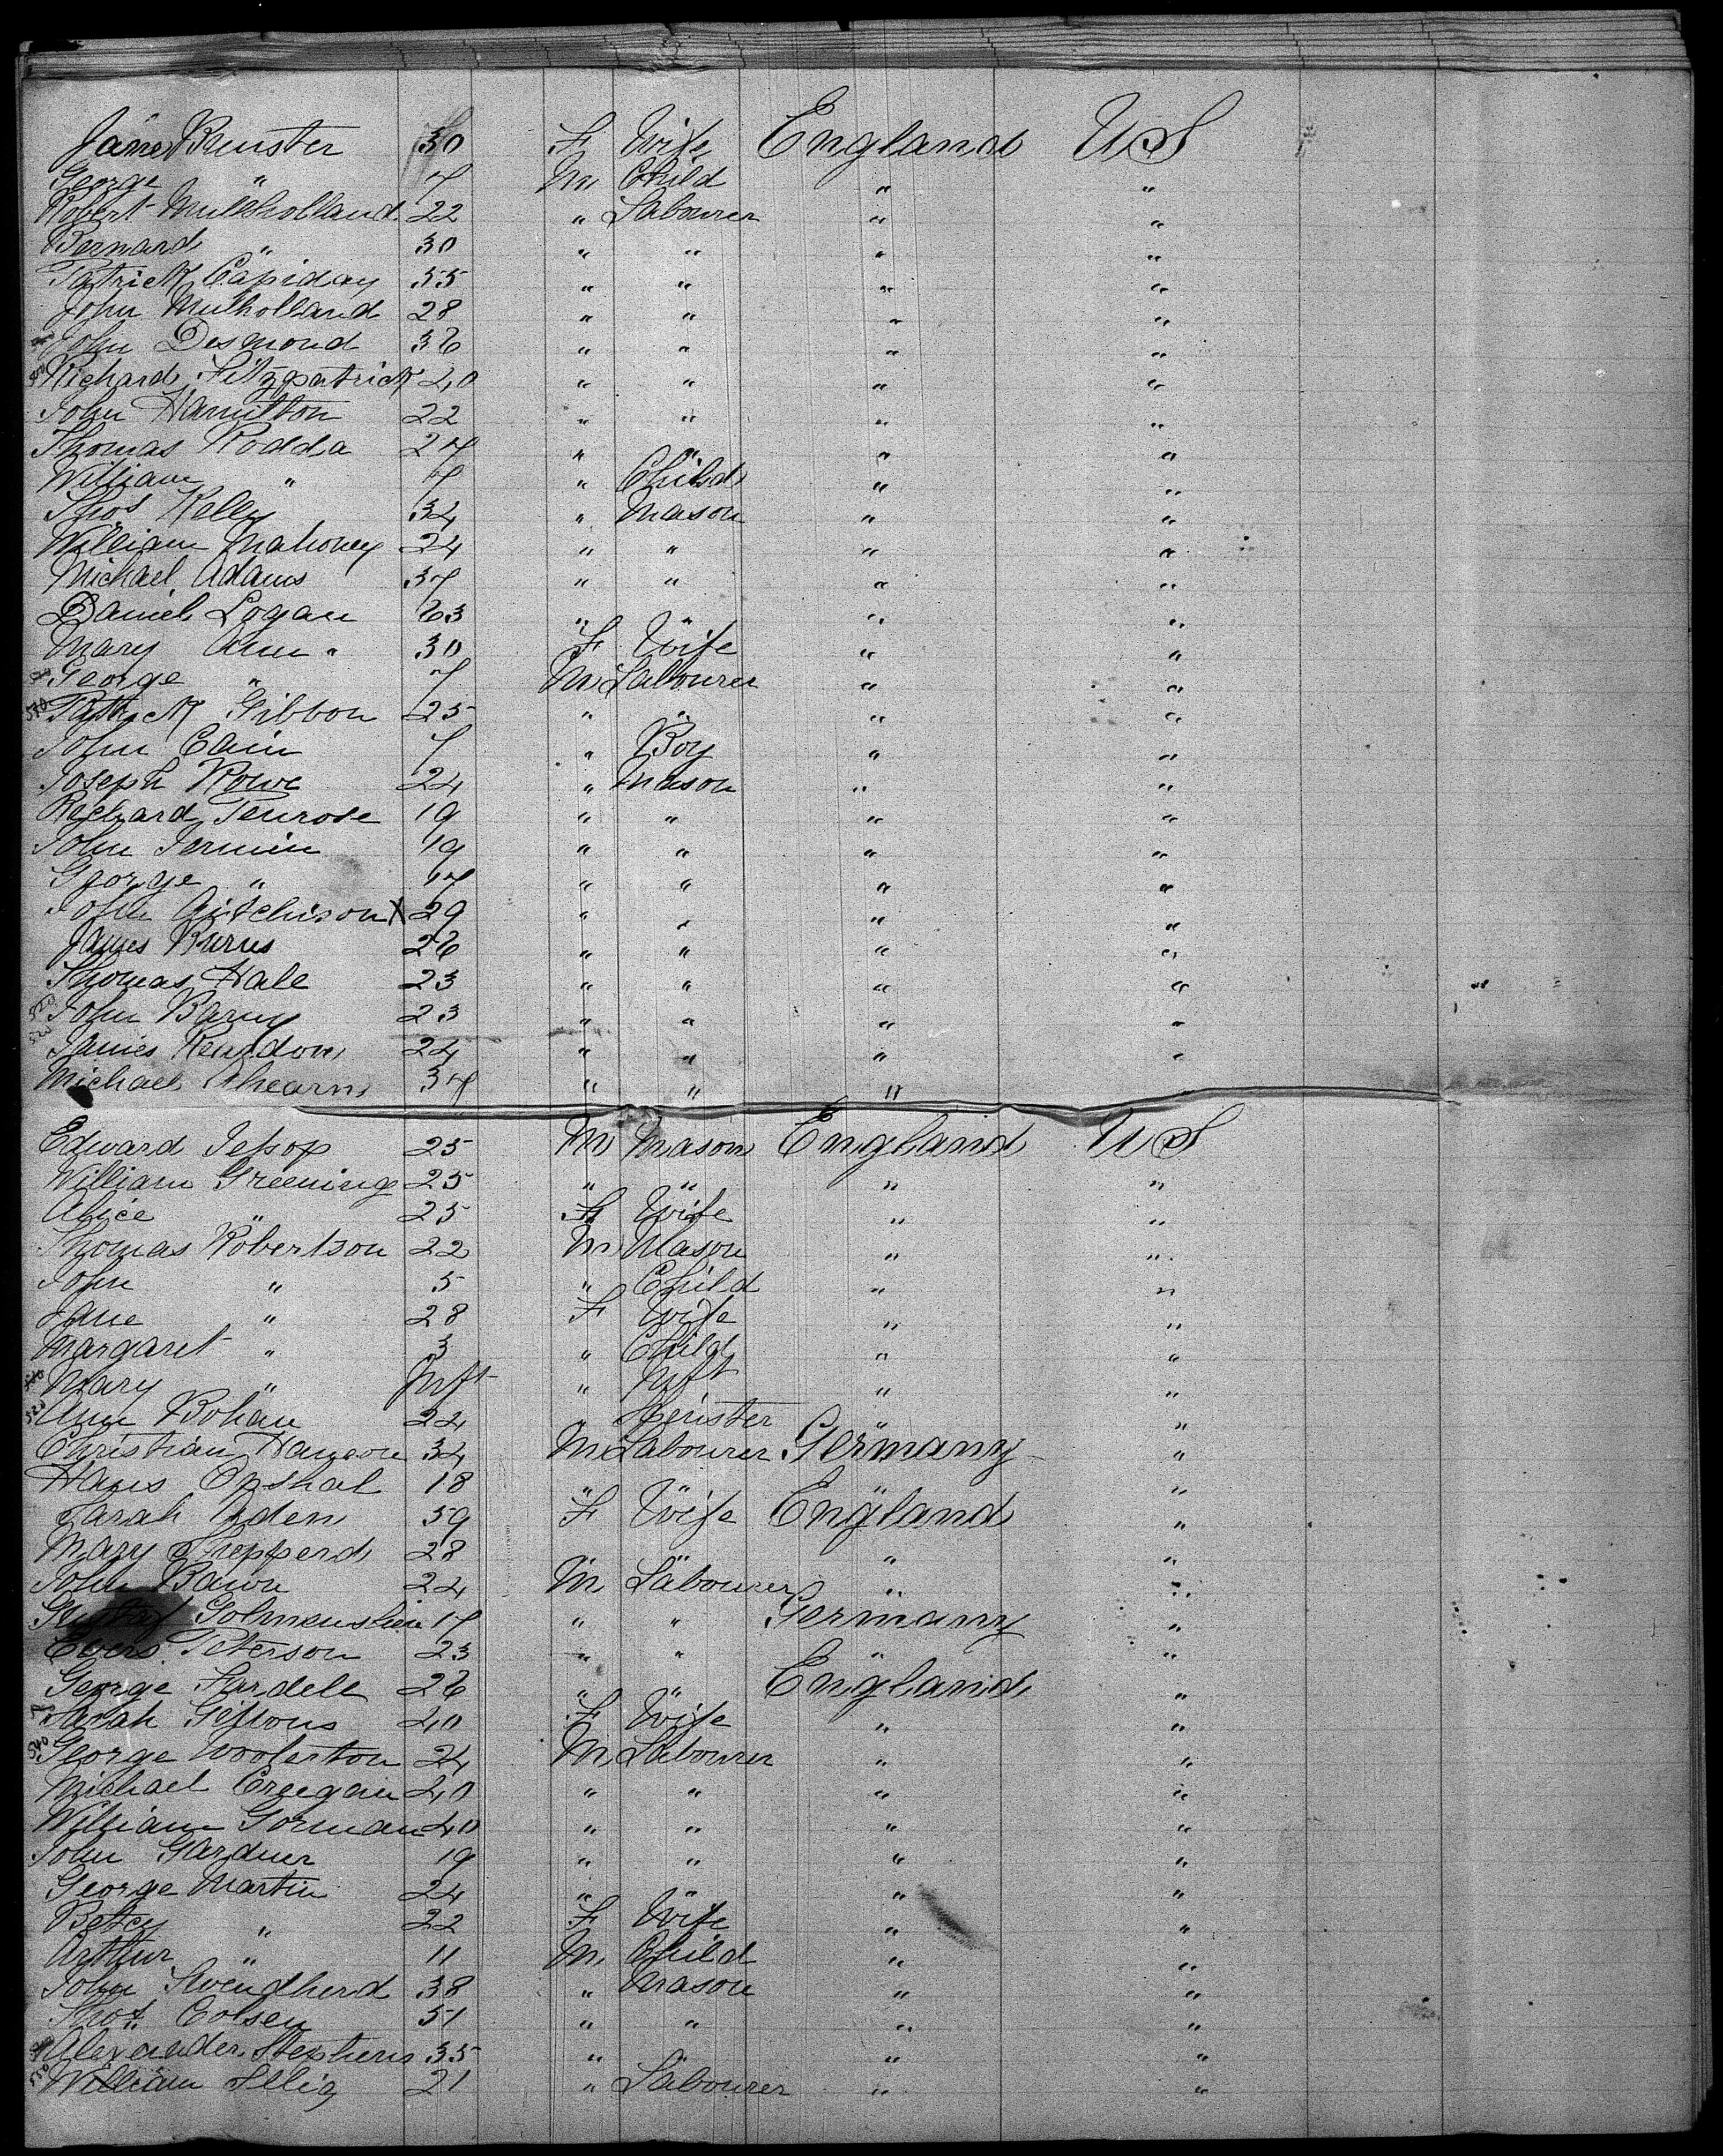 Jane Bruister 30 F Wife England US
George " 7 M Child " "
Robert Mullholland 22 " Labourer " "
Bernard " 30 " " " "
Patrick Capiday 55 " " " "
John Mulholland 28 " " " "
John Desmond 36 " " " "
Richard Fitzpatrick 40 " " " "
John Hamilton 22 " " " "
Thomas Rodda 27 " " " "
William " 7 " Child " "
Thos Kelly 34 " Mason " "
William Mahoney 24 " " " "
Michael Adams 37 " " " "
Daniel Logan 63 " " " "
Mary Ann " 30 F Wife " "
George " 7 M Labourer " "
Patrick Gibbon 25 " " " "
John Cain 7 " Boy " "
Joseph Rowe 24 " Mason " "
Richard Penrose 19 " " " "
John Jermin 19 " " " "
George " 17 " " " "
John Aitchison X 29 " " " "
James Burns 26 " " " "
Thomas Hale 23 " " " "
John Barry 23 " " " "
520 James Reardon 24 " " " "
Michael Ahearn 37 " " "
Edward Jessop 25 M Mason England US
William Greening 25 " " " "
Alice " 25 F Wife " "
Thomas Robertson 22 M Mason " "
John " 5 " Child " "
Jane " 28 F Wife " "
Margaret " 3 " Child " "
Mary " Inft " Inft " "
Ann Bohan 24 " Spinster " "
Christian Hanson 34 M Labourer Germany "
Hans Opshal 18 " " " "
Sarah Arden 59 F Wife England "
Mary Shepperd 28 " " " "
John Bawn 24 M Labourer " "
Gustaf 17 " " Germany "
Evers Peterson 23 " " " "
George Fardell 26 " " England "
Sarah Gibbons 40 F Wife " "
540 George Woolerton 24 M Labourer " "
Michael Creegain 40 " " " "
William Gorman 40 " " " "
John Gardner 19 " " " "
George Martin 24 " " " "
Betsy " 22 F Wife " "
Arthur " 11 M Child " "
John Swendherd 38 " Mason " "
Thos. Colsey 51 " " " "
Alexander Stephens 35 " " "
550 William Ellig 21 " Labourer " "